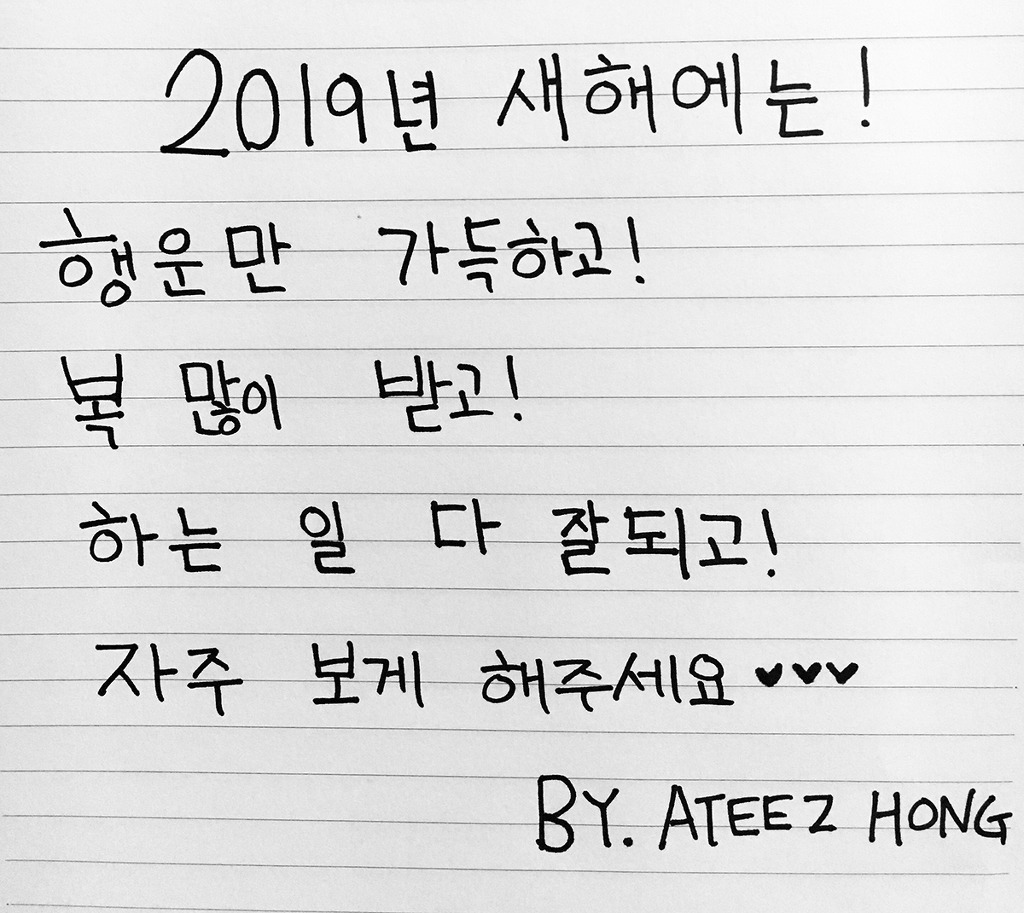 2019년 새해에는!
행운만 가득하고!
복 많이 받고!
하는 일 다 잘되고!
자주 보게 해주세요 ♥♥♥
BY. ATEEZ HONG